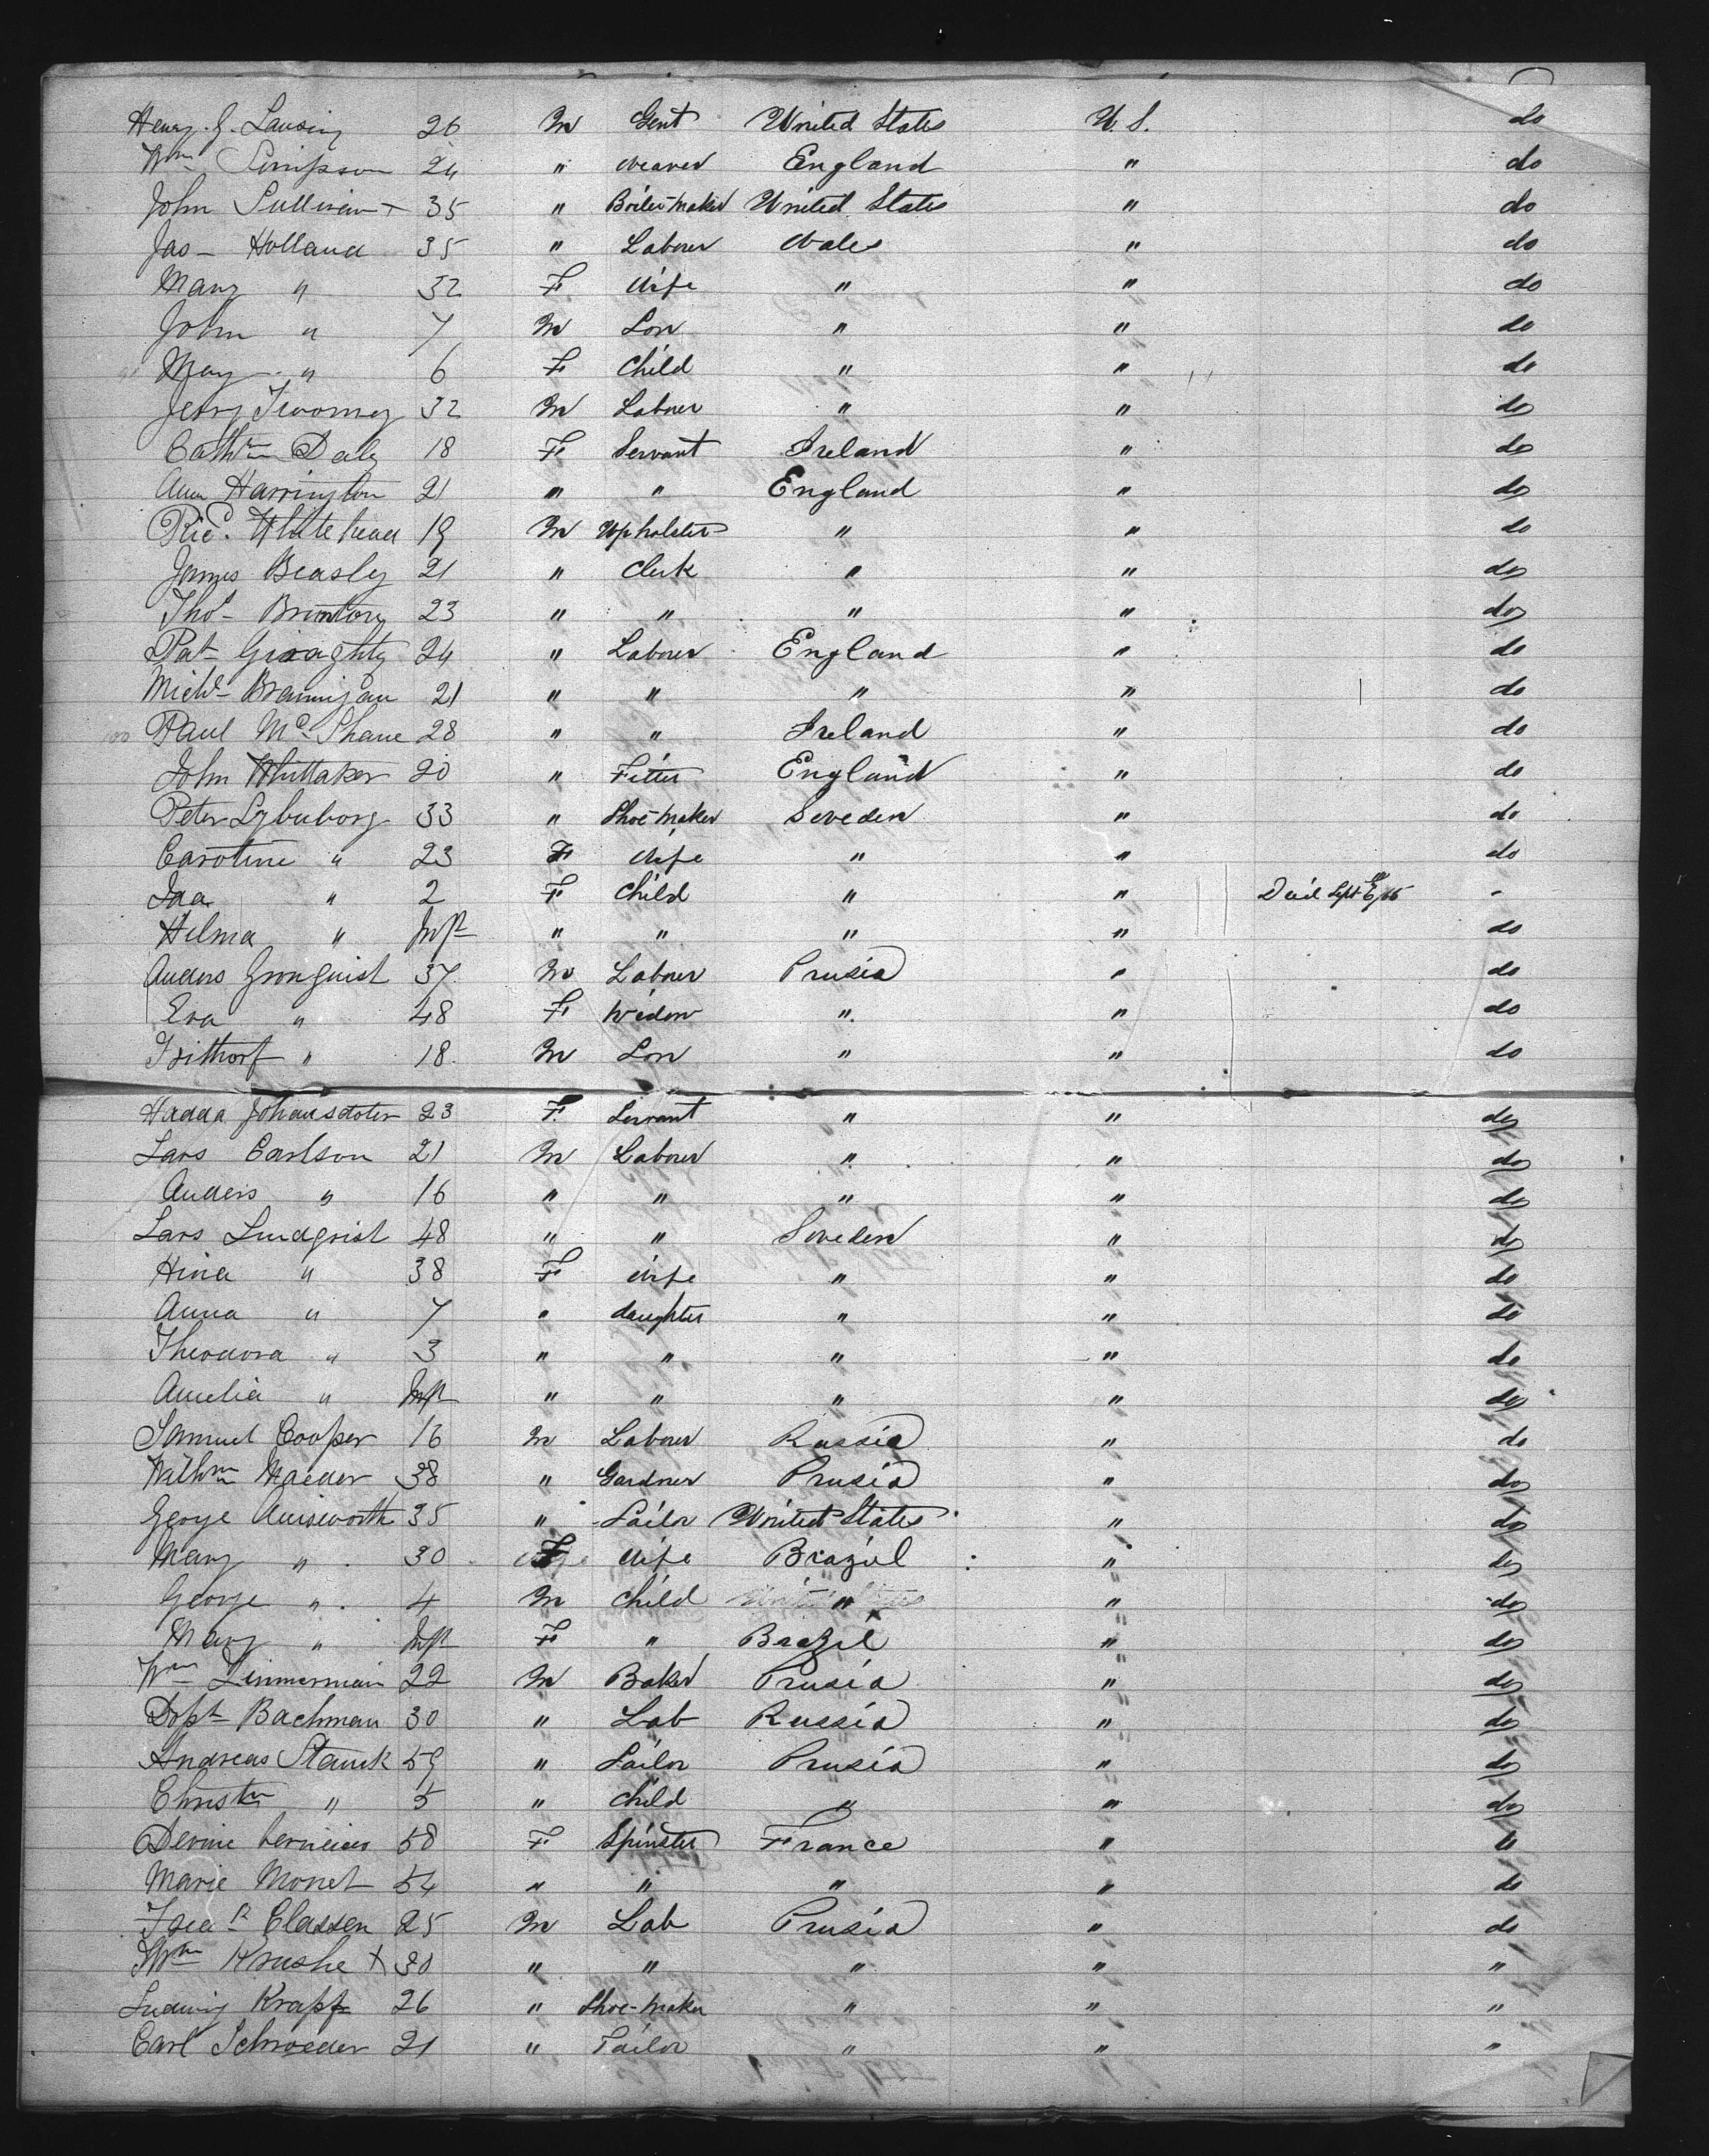 Henry. G. Lansing 26 M Gent United States U. S. do
Wm Simpson 24 " Weaver England " do
John Sullivan + 35 " Boiler Maker United States " do
Jas - Holland 35 " Laborer Wales " do
Mary " 32 F Wife " " do
John " 7 M Son " " do
May " 6 F Child " " do
Jerry Twomey 32 M Laborer " " do
Cathrn Daly 18 F Servant Ireland " do
Ann Harrington 21 " " England " do
Ricd. Whitehead 19 M Upholster " " do
James Beasly 21 " Clerk " " do
Thos - 23 " " " " do
Pat Giraghty 24 " Laborer England " do
Michl - Brannigan 21 " " " " do
100 Paul Mc Shane 28 " " Ireland " do
John Whittaker 20 " Fitter England " do
Peter 33 " Shoe-Maker Sweden " do
Caroline " 23 F Wife " " do
Ida " 2 F Child " " Died Sept -
Hilma " Inft " " " " do
Anders Gronquist 37 M Laborer Prusia " do
Eva " 48 F Widow " " do
Frithorf " 18 M Son " " do
Hadda Johansdoter 23 F Servant " " do
Lars Carlson 21 M Laborer " " do
Anders " 16 " " " " do
Lars Lindqrist 48 " " Sweden " do
Hina " 38 F Wife " " do
Anna " 7 " daughter " " do
Theodora " 3 " " " " do
Amelia " Inft " " " " do
Samuel Cooper 16 M Laborer Russia " do
Wilhm Maeder 38 " Gardner Prusia " do
George Ainsworth 35 " Sailor United States " do
Mary " 30 F Wife Brazil " do
George " 4 M Child " " do
Mary " Inft F " Brazil " do
Wm Zimmerman 22 M Baker Prusia " do
Bachman 30 " Lab Russia " do
Andreas Stanck 59 " Sailor Prusia " do
Christn " 5 " Child " " do
58 F Spinster France " "
Marie Monet 54 " " " " do
Classen 25 M Lab Prusia " do
Wm Krushe + 30 " " " " "
Ludwig Krapf 26 " Shoe-Maker " " "
Carl Schroeder 21 " Tailor " " "